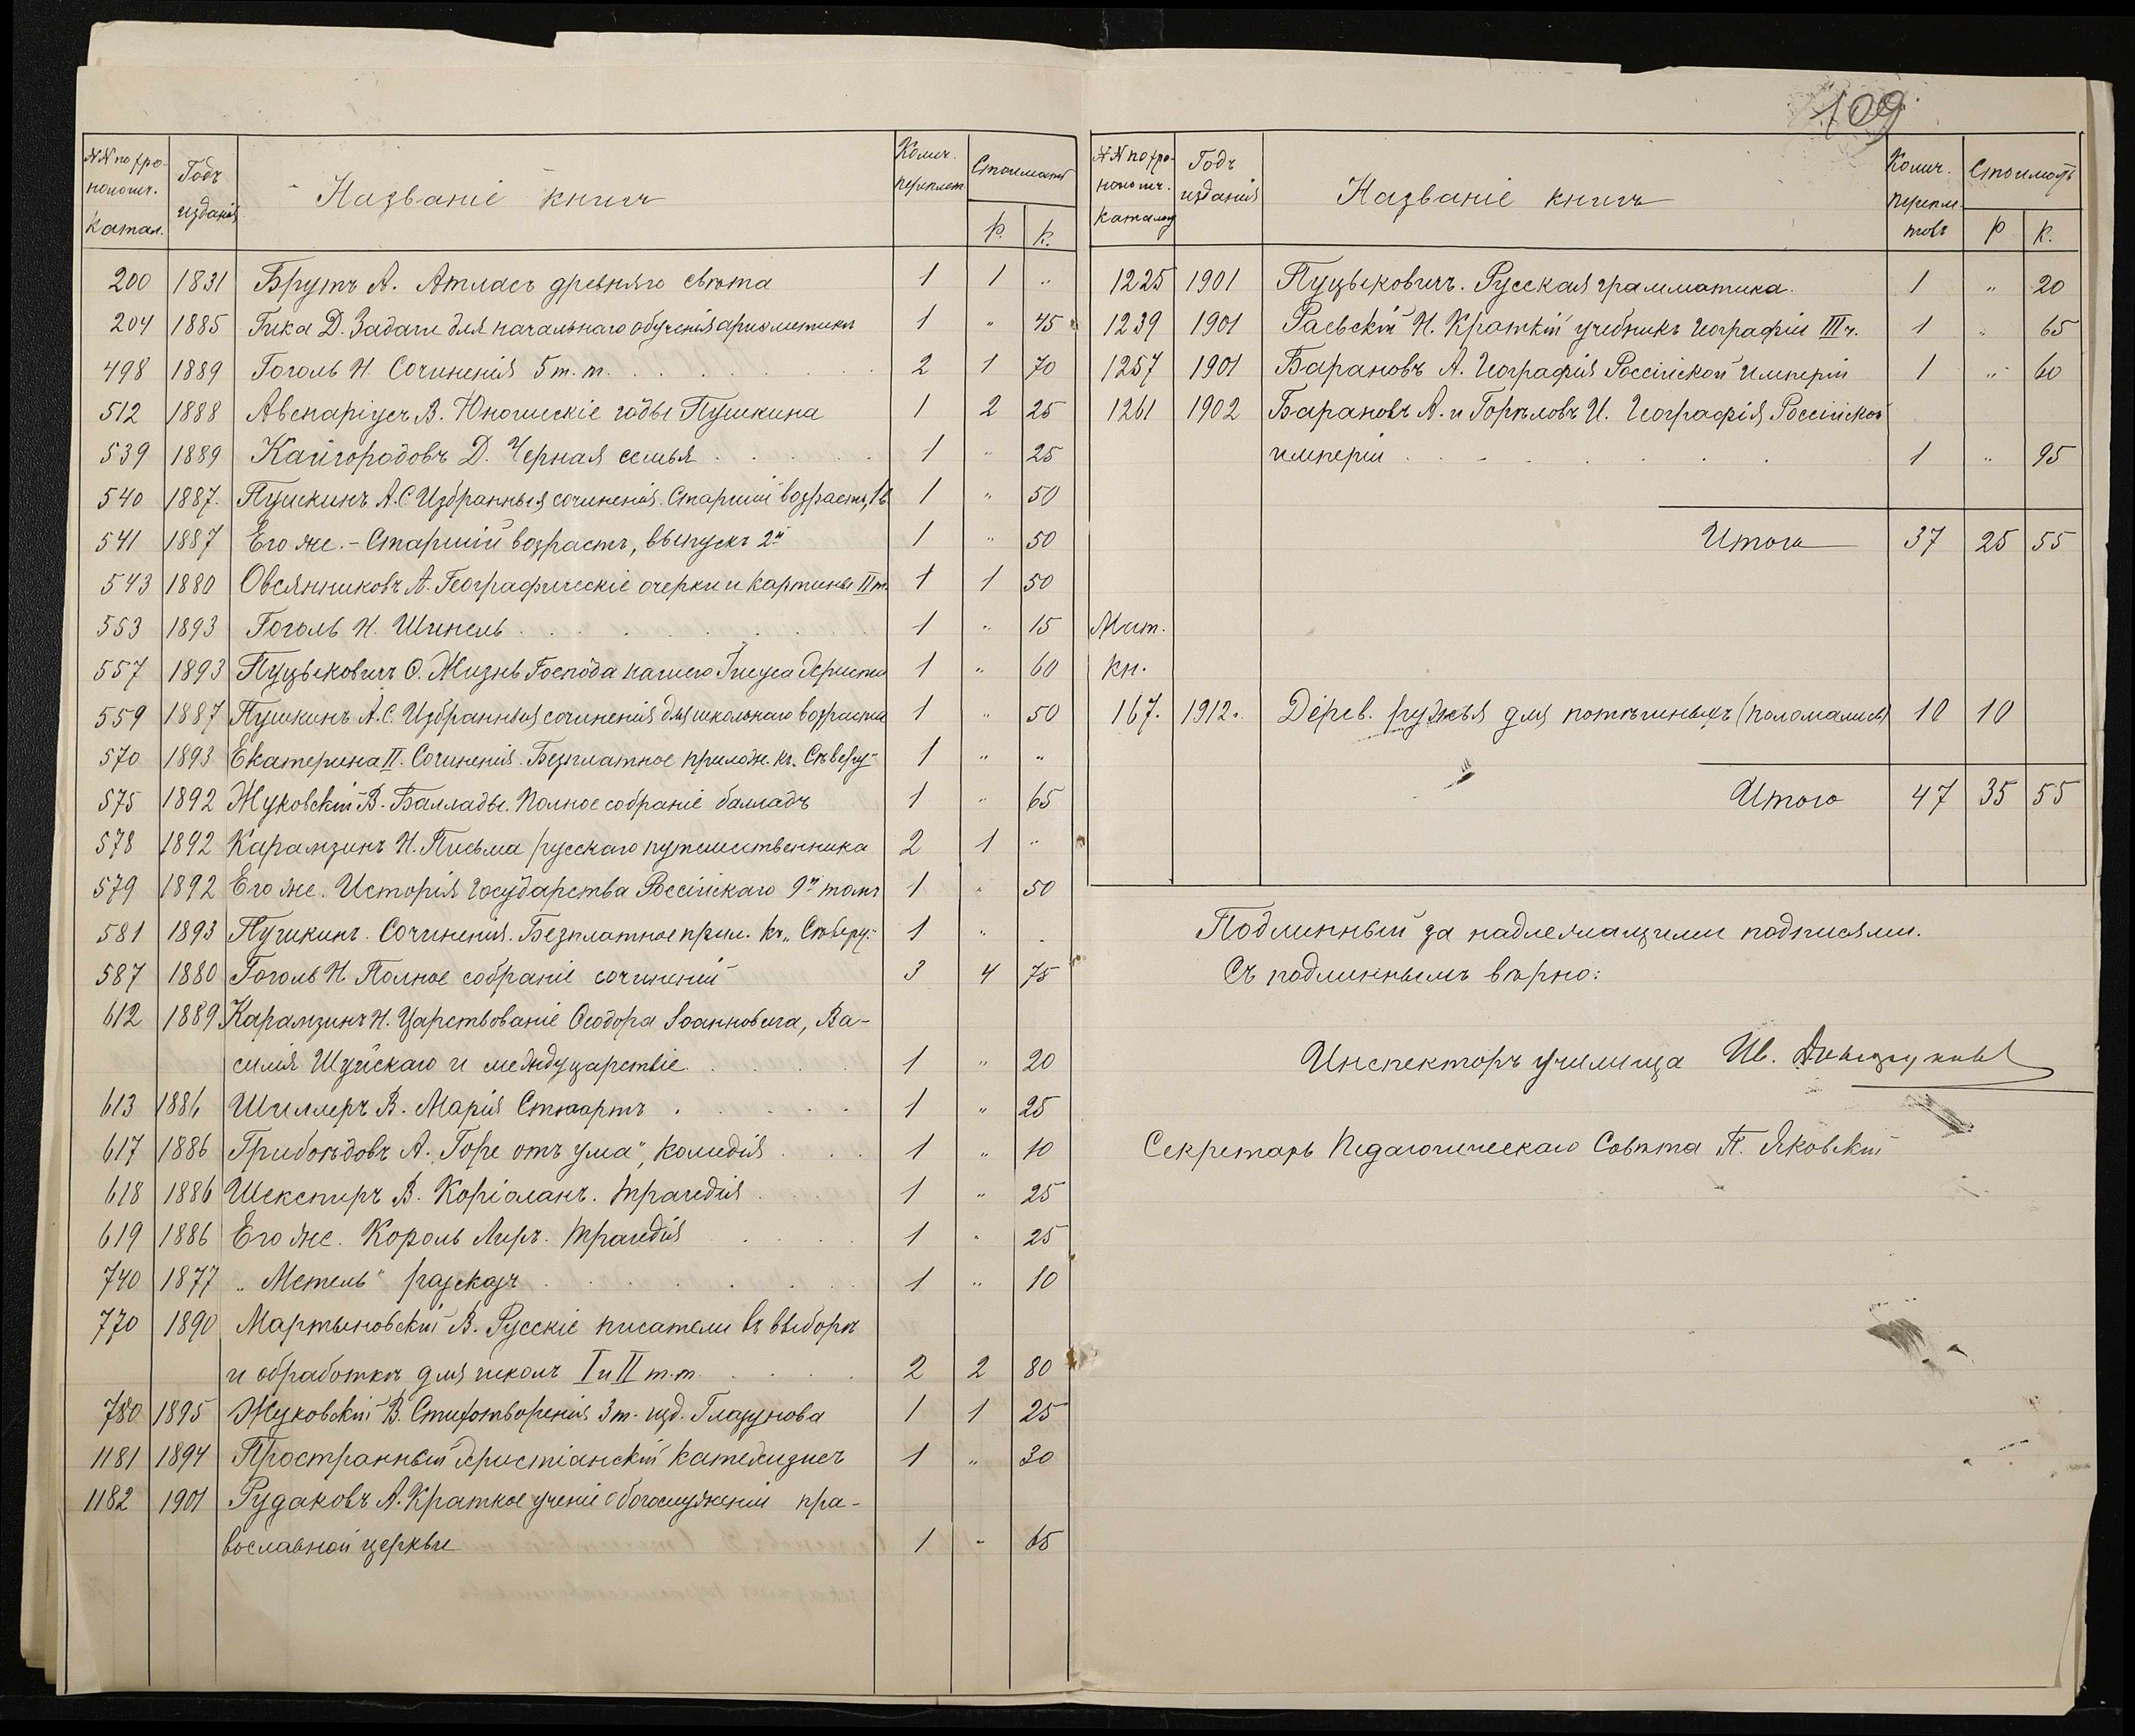 109
NN по хро- Годъ Названіе книгъ Колич. Стоимость
нологич. изданія переплет.
катал. р. к.
200 1831 Брутъ А. Атласъ древняго свѣта 1 1 "
204 1885 Гика Д. Задачи для начальнаго обученія ариѳметикѣ 1 " 45
498 1889 Гоголь Н. Сочиненія 5 т.т. 2 1 70
512 1888 Авенаріусъ В. Юношескіе годы Пушкина 1 2 25
539 1889 Кайгородовъ Д. Черная семья 1 " 25
540 1887. Пушкинъ А.С. Избранныя сочиненія. Старшій возрастъ, 1 в. 1 " 50
541 1887 Его же. - Старшій возрастъ, выпускъ 2й 1 " 50
543 1880 Овсянниковъ А. Географическіе очерки и картины II т. 1 1 50
553 1893 Гоголь Н. Шинель 1 " 15
557 1893 Пуцыковичъ Ѳ. Жизнь Господа нашего Іисуса Христа 1 " 60
559 1887 Пушкинъ А.С. Избранныя сочиненія для школьнаго возраста 1 " 50
570 1893 Екатерина II. Сочиненія. Безплатное прилож. къ „Сѣверу" 1 " "
575 1892 Жуковскій В. Баллады. Полное собраніе балладъ 1 " 65
578 1892 Карамзинъ Н. Письма русскаго путешественника 2 1 "
579 1892 Его же. Исторія Государства Россійскаго 9й томъ 1 " 50
581 1893 Пушкинъ. Сочиненія. Безплатное прил. къ „Сѣверу" 1 " .
587 1880 Гоголь Н. Полное собраніе сочиненій 3 4 75
612 1889 Карамзинъ Н. Царствованіе Ѳеодора Іоанновича, Ва-
силія Шуйскаго и междуцарствіе 1 " 20
613 1886 Шиллеръ В. Марія Стюартъ 1 " 25
617 1886 Грибоѣдовъ А. „Горе отъ ума", комедія 1 " 10
618 1886 Шекспиръ В. Коріоланъ. Трагедія 1 " 25
619 1886 Его же. Король Лиръ. Трагедія 1 " 25
740 1877 „Метель" разсказъ 1 " 10
770 1890 Мартыновскій В. Русскіе писатели въ выборѣ
и обработкѣ для школъ I и II т.т. 2 2 80
780 1895 Жуковскій В. Стихотворенія 3 т. изд. Глазунова 1 1 25
1181 1894 Пространный христіанскій катехизисъ 1 " 30
1182 1901 Рудаковъ А. Краткое ученіе о богослуженіи пра-
вославной церкви 1 " 65
NN по хро- Годъ Названіе книгъ Колич. Стоимость
нологич. изданія перепле-
каталогу товъ р к.
1225 1901 Пуцыковичъ. Русская грамматика. 1 " 20
1239 1901 Раевскій Н. Краткій учебникъ географіи III ч. 1 " 65
1257 1901 Барановъ А. Географія Россійской имперіи 1 " 60
1261 1902 Барановъ А. и Горѣловъ И. Географія Россійской
имперіи 1 " 95
Итого 37 25 55
Мат.
кн.
167. 1912. Дерев. ружья для потѣшныхъ (поломались) 10 10
Итого 47 35 55
Подлинный за надлежащими подписями.
Съ подлиннымъ вѣрно:
Инспекторъ училища Ив.
Секретарь Педагогическаго Совѣта П. Яковскій